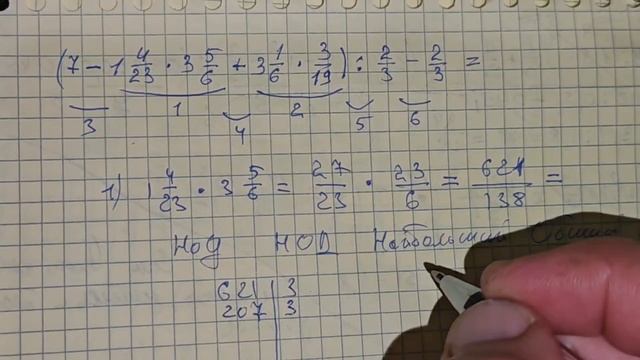 (7 − 1 4/23 · 3 5/6 + 3 1/6 · 3/19) : 2/3 − 2/3 =
3 1 4 2 5 6
1) 1 4/23 · 3 5/6 = 27/23 · 23/6 = 621/138 =
НОД НОД Наибольший Общий
621 | 3
207 | 3